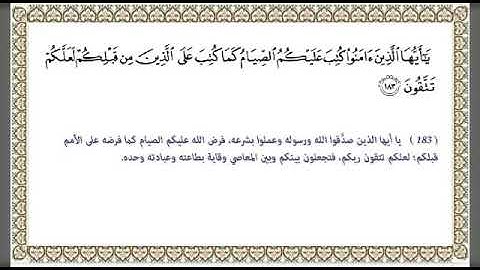 يَٰٓأَيُّهَا ٱلَّذِينَ ءَامَنُوا۟ كُتِبَ عَلَيْكُمُ ٱلصِّيَامُ كَمَا كُتِبَ عَلَى ٱلَّذِينَ مِن قَبْلِكُمْ لَعَلَّكُمْ
تَتَّقُونَ ١٨٣
(183) يا أيها الذين صدَّقوا الله ورسوله وعملوا بشرعه، فرض الله عليكم الصيام كما فرضه على الأمم
قبلكم؛ لعلكم تتقون ربكم، فتجعلون بينكم وبين المعاصي وقاية بطاعته وعبادته وحده.